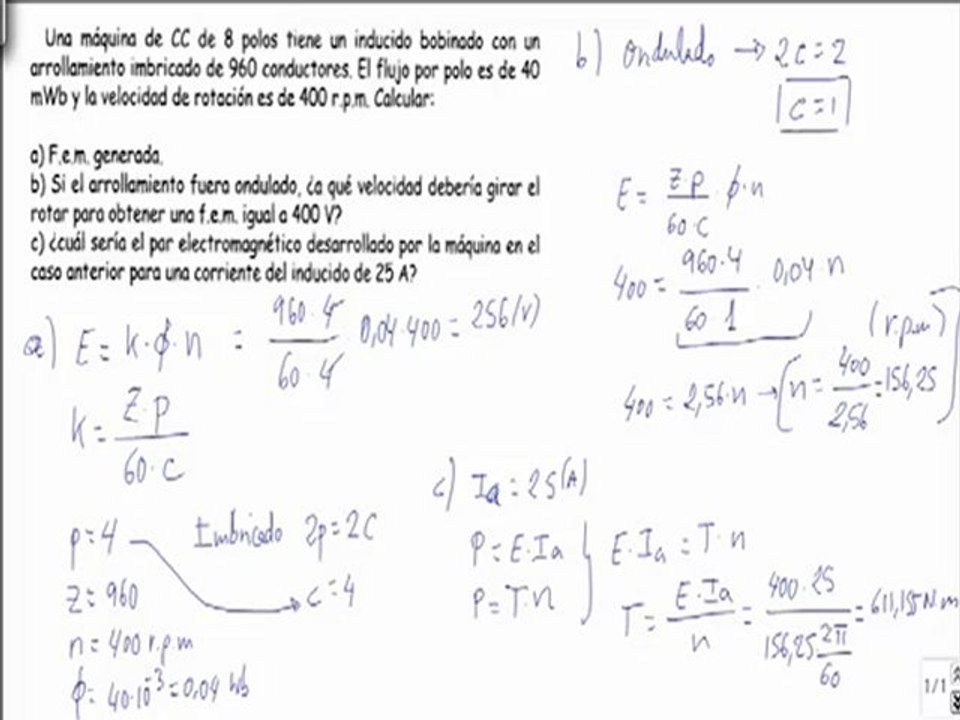 Una máquina de CC de 8 polos tiene un inducido bobinado con un
arrollamiento imbricado de 960 conductores. El flujo por polo es de 40
mWb y la velocidad de rotación es de 400 r.p.m. Calcular:
a) F.e.m. generada.
b) Si el arrollamiento fuera ondulado, ¿a qué velocidad debería girar el
rotor para obtener una f.e.m. igual a 400 V?
c) ¿cuál sería el par electromagnético desarrollado por la máquina en el
caso anterior para una corriente del inducido de 25 A?
a) E = k·ϕ·n = 960·4 / 60·4 · 0,04·400 = 256 (V)
k = Z·p / 60·c
p = 4 Imbricado 2p = 2c
z = 960 → c = 4
n = 400 r.p.m
ϕ = 40·10⁻³ = 0,04 Wb
b) Ondulado → 2c = 2
c = 1
E = Z·p / 60·c · ϕ·n
400 = 960·4 / 60 1 · 0,04·n
(r.p.m)
400 = 2,56·n → n = 400 / 2,56 = 156,25
c) Ia = 25 (A)
P = E·Ia } E·Ia = T·n
P = T·n
T = E·Ia / n = 400·25 / 156,25·2π/60 = 611,155 N.m
1/1